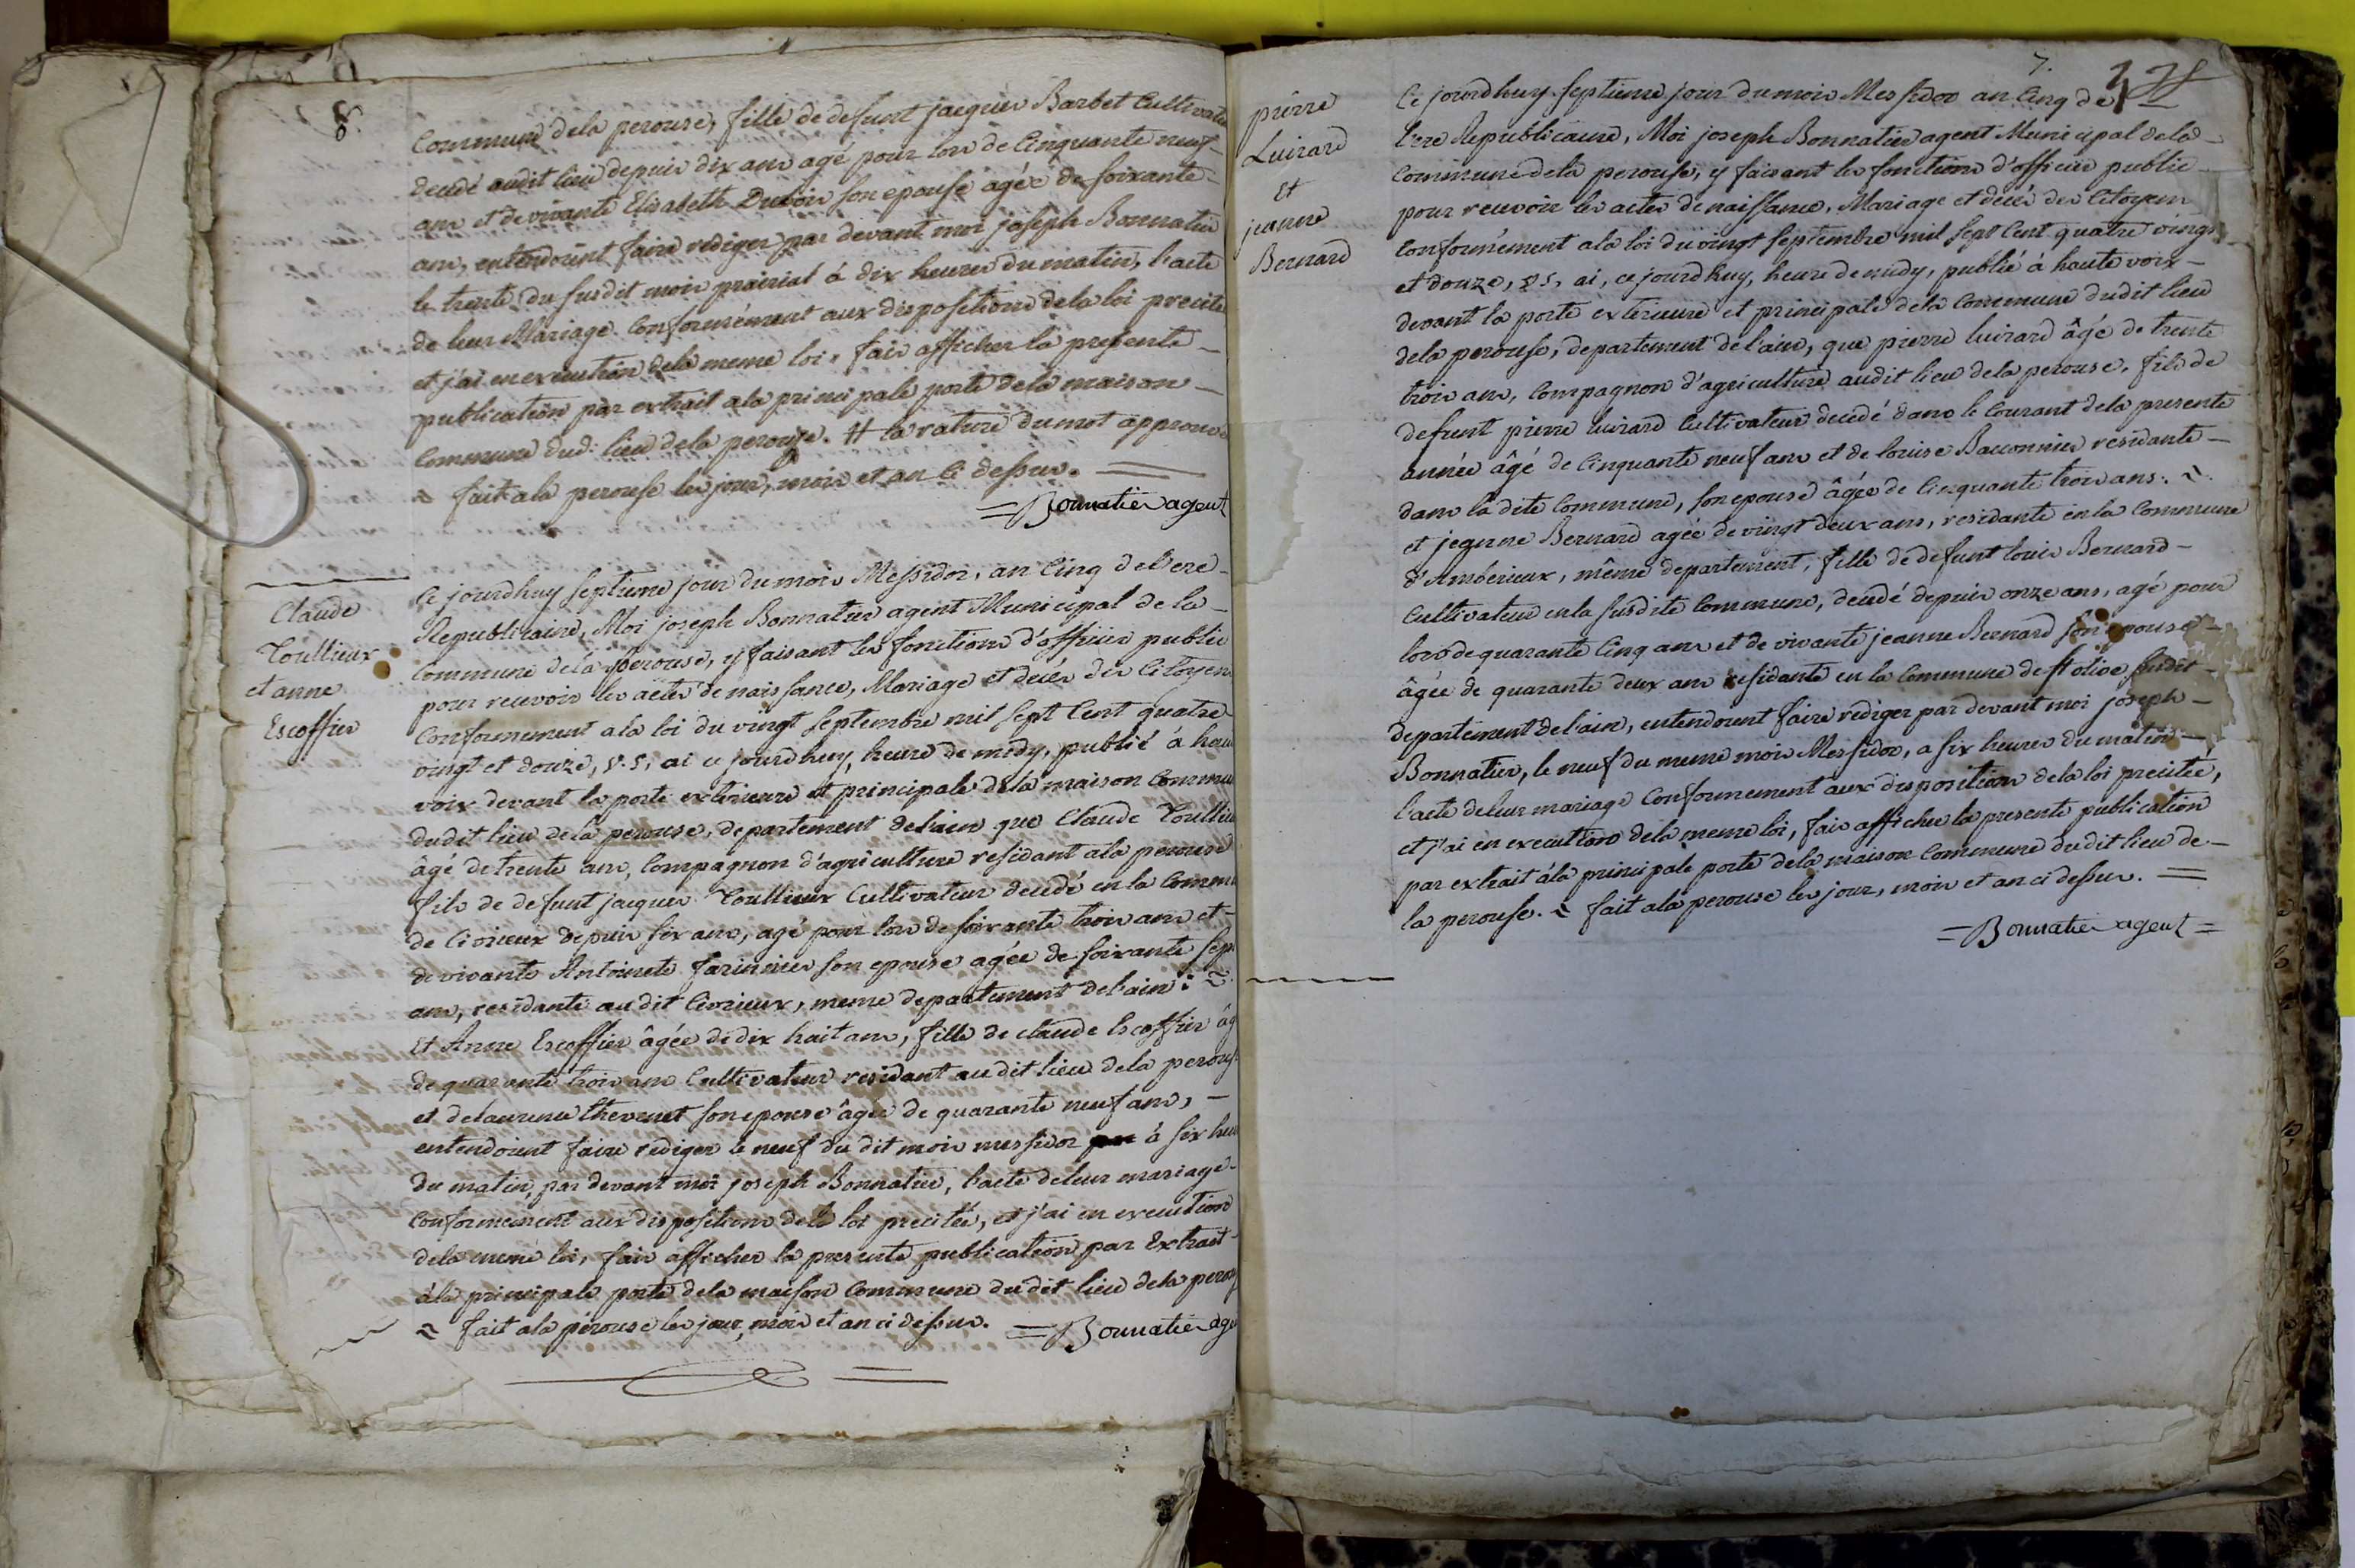 Commune dela perouse, fille de defunt jacques Barbet Cultivate
decedé audit lieu depuis dix ans agé pour lors de Cinquante neuf
ans et de vivante Elisabeth Dubois son epouse agée de soixante
ans, entendoient faire rediger par devant moi joseph Bonnatier
le trente du susdit mois prairial à dix heures du matin, l'acte
de leur Mariage Conformément aux dispositions dela loi precité
et j'ai en execution dela meme loi, fais afficher la presente
publication par extrait ala principale porte dela maison
Commune dud. lieu dela perouse. # la rature du mot approuvé
fait ala perouse les jour, mois et an Ci dessus.
Bonnatier agent
Claude
Toullieux
et anne
Escoffier
Ce jourdhuy septieme jour du mois Messidor, an Cinq del'ere
Republicaine, Moi joseph Bonnatier agent Municipal de la
Commune de la perouse, y faisant les fonctions d'officier public
pour recevoir les actes de naissance, Mariage et décés des Citoyens
Conformement ala loi du vingt septembre mil sept Cent quatre
vingt et douze, v.s, ai ce jourdhuy, heure de midy, publié à haute
voix devant la porte exterieure et principale dela maison Commu
dudit lieu dela perouse, departement delain que Claude Toullieu
âgé de trente ans, Compagnon d'agriculture residant ala perouse
fils de defunt jacques Toullieux Cultivateur decedé en la Commu
de Civrieux depuis six ans, agé pour lors de soixante trois ans et
de vivante Antoinete farinier son epouse agée de soixante sept
ans, residante audit Civrieux, meme departement del'ain :
Et Anne Escoffier âgée de dix huit ans, fille de claude Escoffier âg
de quarante trois ans Cultivateur residant audit lieu dela perous
et delaurence thevenet son epouse âgée de quarante neuf ans,
entendoient faire rediger le neuf du dit mois messidor à six heu
du matin, par devant moi joseph Bonnatier, l'acte deleur mariage
Conformement aux dispositions dela loi precitée, et j'ai en execution
dela meme loi, fais afficher la presente publication par Extrait
àla principale porte dela maison Commune du dit lieu dela perous
fait ala pérouse les jour, mois et an ci dessus. Bonnatier age
7.
pierre
Luirard
Et
jeanne
Bernard
Ce jourdhuy septieme jour du mois Messidor an Cinq de
l'ere Republicaine, Moi joseph Bonnatier agent Municipal dela
Commune dela perouse, y faisant les fonctions d'officier public
pour recevoir les actes de naissance, Mariage et décés des Citoyens
Conformément ala loi du vingt septembre mil sept Cent quatre vingt
et douze, v.s, ai, ce jourdhuy, heure de midy, publié à haute voix
devant la porte exterieure et principale dela Commune dudit lieu
dela perouse, departement de l'ain, que pierre luirard âgé de trente
trois ans, Compagnon d'agriculture audit lieu dela perouse, fils de
defunt pierre luirard Cultivateur decedé dans le Courant dela presente
année âgé de Cinquante neuf ans et de louise Baconnier residante
dans la dite Commune, son epouse âgée de Cinquante trois ans.
et jeanne Bernard agée de vingt deux ans, residante en la Commune
d'Amberieux, même departement, fille de defunt louis Bernard
Cultivateur en la susdite Commune, decedé depuis onze ans, agé pour
lors de quarante Cinq ans et de vivante jeanne Bernard son epouse
âgée de quarante deux ans residante en la Commune de st olive susdit
departement de l'ain, entendoient faire rediger par devant moi joseph
Bonnatier, le neuf du meme mois Messidor, a six heures du matin
l'acte deleur mariage Conformement aux disposition dela loi precitée,
et j'ai en execution dela meme loi, fais afficher la presente publication
par extrait àla principale porte dela maison Commune dudit lieu de
la perouse. fait ala perouse les jour, mois et an ci dessus.
Bonnatier agent